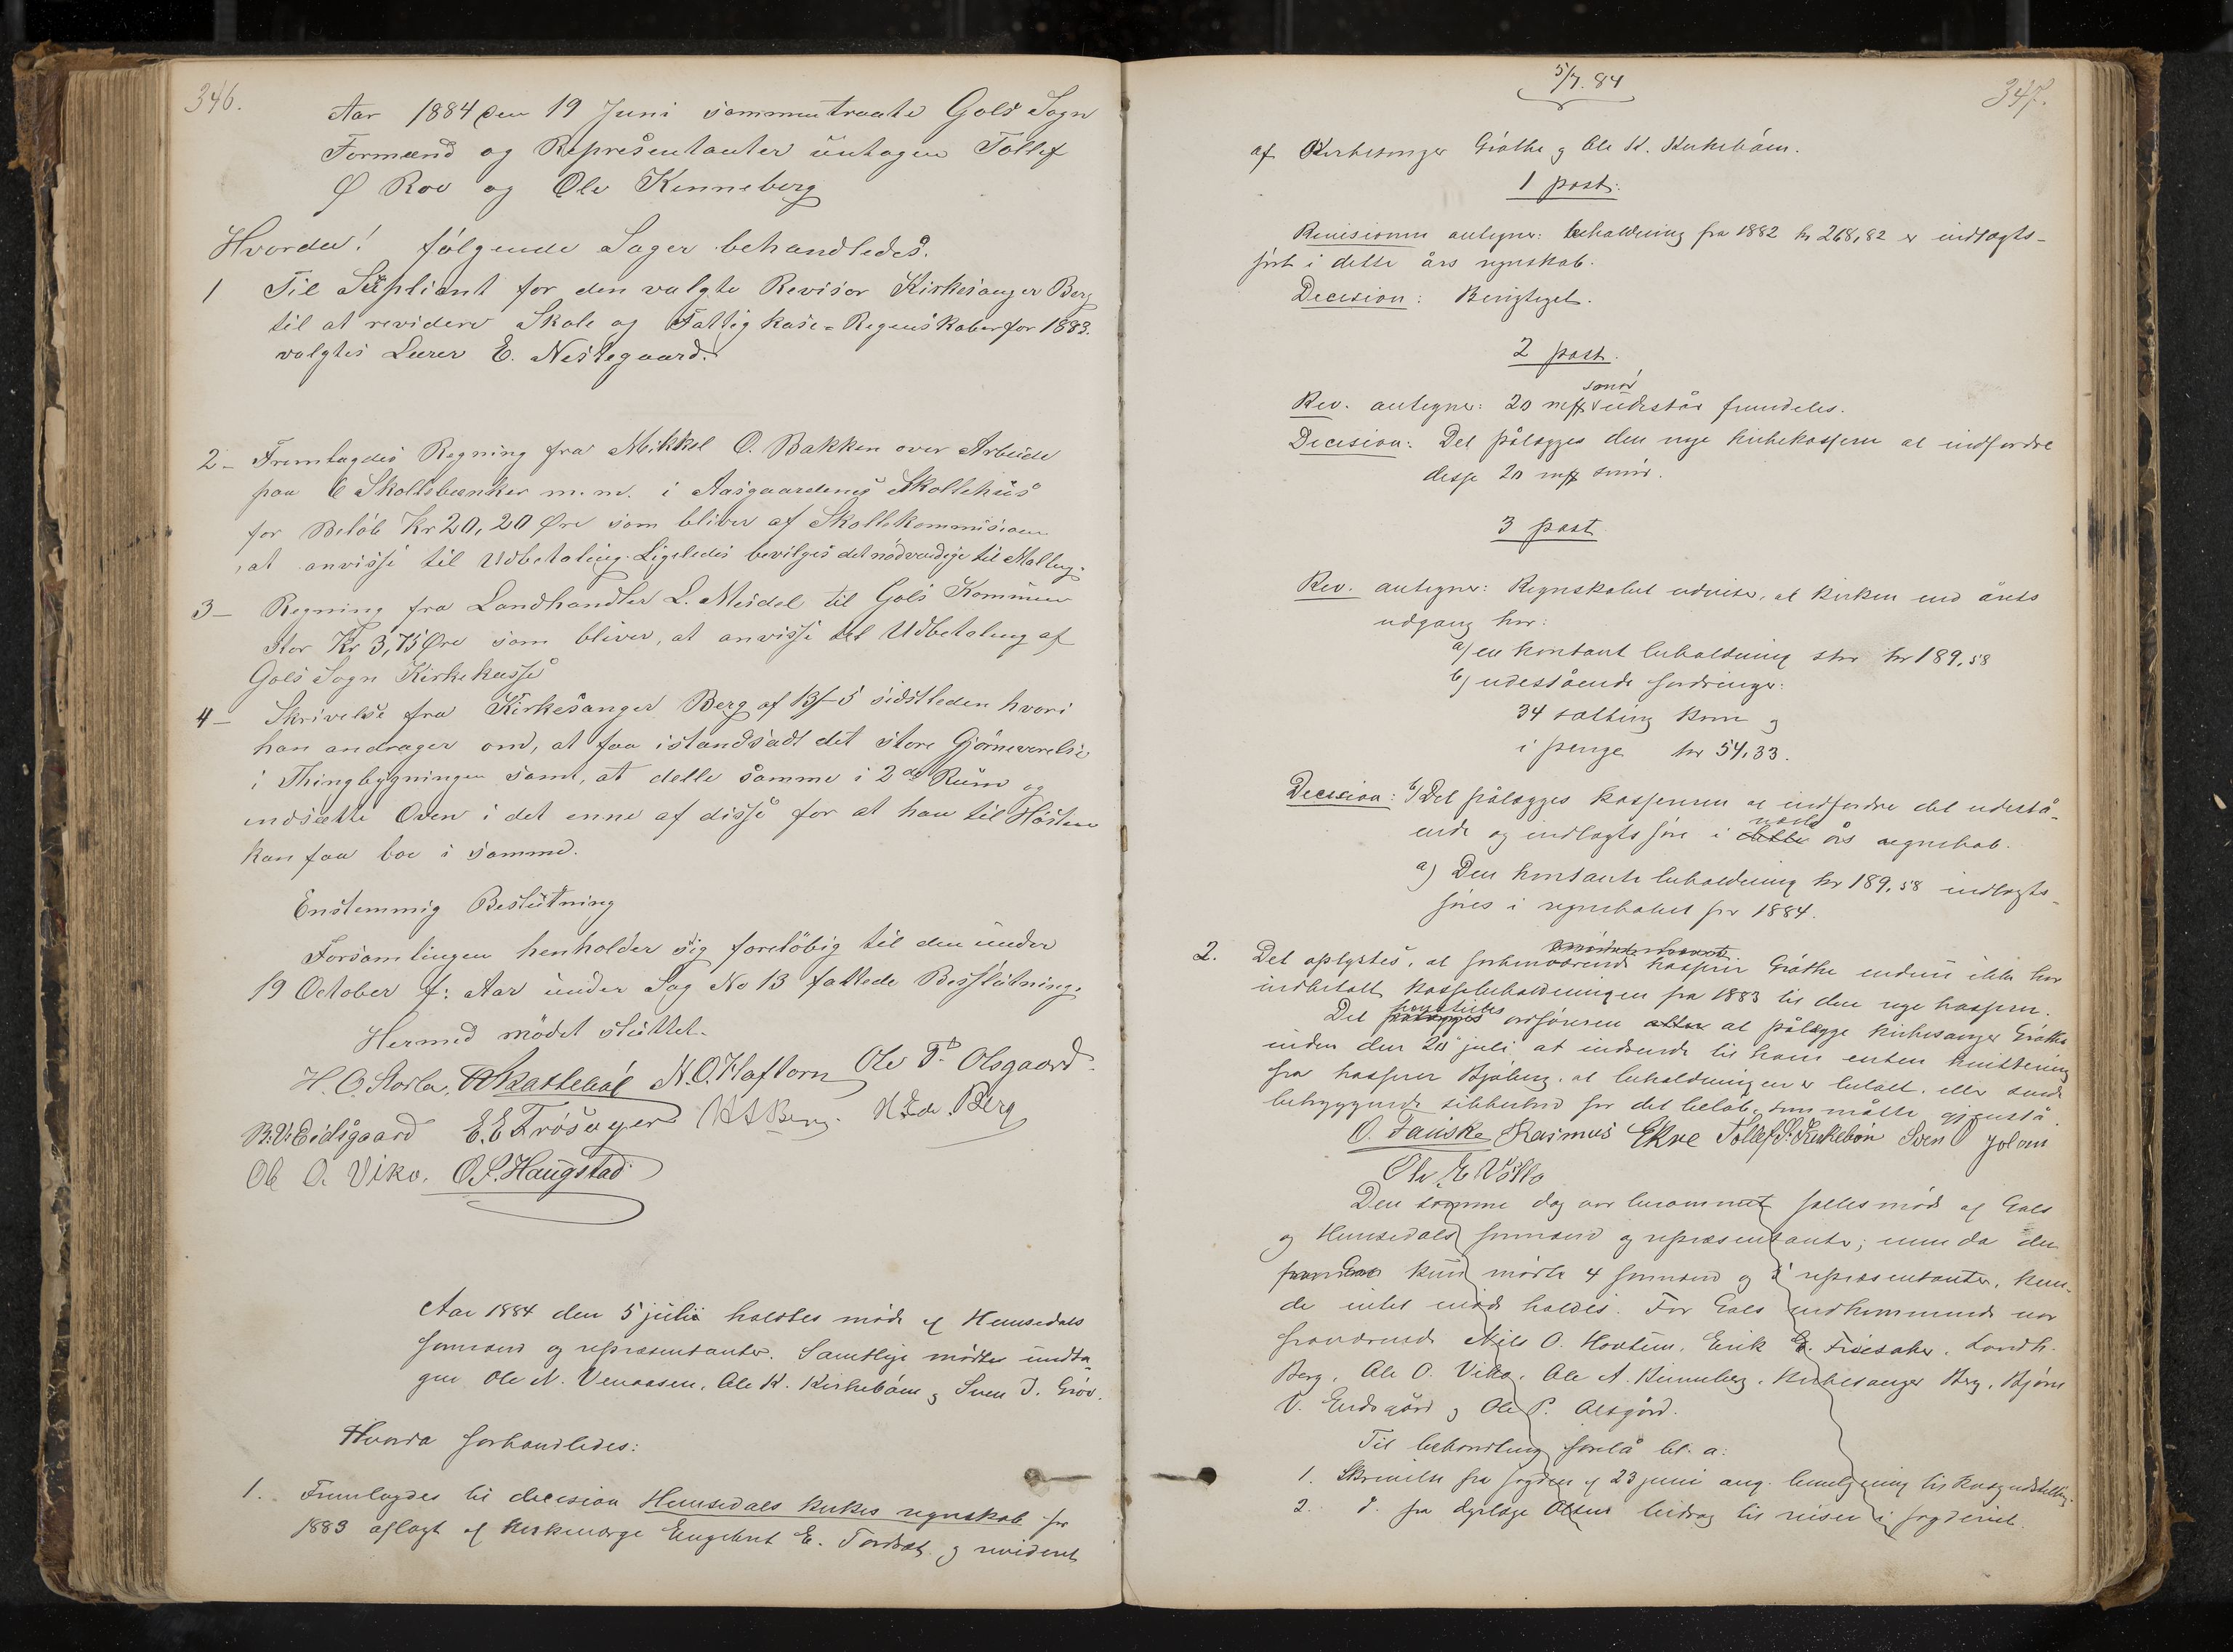 346.
Aar 1884 den 19 Juni sammentraate Gols Sogn
Formænd og Repræsentanter untagen Tollef
Ø Roo og Ole Kinneberg
Hvorder! følgende Sager behandledes.
1 Til Supliant for den valgte Revisor Kirkesanger Berg
til at revidere Skole og Fattigkase-Regenskaber for 1883.
valgtes Lærer E. Nestegaard.
2- Fremlagdes Regning fra Mikkel O. Bakken over Arbeide
paa 6 Skollsbænker m.m. i Aasgaardens Skollehus
for Beløb Kr 20,20 Øre som bliver af Skollekommisionen
at anvisse til Udbetaling. Ligeledes bevilges det nødvendige til Malling.
3- Regning fra Landhandler L. Meidel til Gols Kommune
stor Kr 3,75 Øre som bliver, at anvisse til Udbetaling af
Gols Sogn Kirkekasse
4- Skrivelse fra Kirkesanger Berg af 13/5 sidstleden hvori
han andrager om, at faa istandsadt det store Gjørneverelse
i Thingbygningen samt, at dette samme i 2de Rum og
indsætte Oven i det enne af disse for at han til Høsten
kan faa boe i samme.
Enstemmig Beslutning
Forsamlingen henholder sig foreløbig til den under
19 October f: Aar under Sag No 13 fattede Besslutning.
Hermed mødet sluttet.
H. O. Storla, N. O. Haftorn Ole P. Olsgaard
B. V. Eidsgaard E. E Frøsager Berg
Ole O. Viko. O. P. Haugstad
Aar 1884 den 5 julii holdtes møde af Hemsedals
formænd og repræsentanter. Samtlige mødtes undta-
gen Ole N. Venaasen, Ole K. Kirkebøen og Sven J. Grøv.
Hvorda forhandledes:
1. Fremlagdes til decision Hemsedals kirkes regnskab for
1883 aflagt af kirkeværge Engebret E. Tordsæt. og revideret
5/7. 84
347.
af Kirkesanger Grøthe og Ole K. Kirkebøen.
1 post:
Revisionen antegner: beholdning fra 1882 kr 268,82 er indtægts-
ført i dette års regnskab.
Decision: Berigtiget.
2 post.
smør
Rev. antegner: 20 udestår fremdeles.
Decision: Det pålægges den nye kirkekasserer at indfordre
desse 20 smør.
3 post
Rev. antegner: Regnskabet udviser, at kirken ved årets
udgang har:
a) en kontant beholdning stor kr 189,58
b) udestående fordringer:
34 sætting korn og
i penge kr 54,33.
Decision: b) Det pålægges kassereren at indfordre det udestå-
næste
ende og indtægtsføre i dette års regnskab.
a) Den kontante beholdning kr 189,58 indtægts-
føres i regnskabet for 1884.
2. Det oplystes, at forhenværende kasserer Grøthe endnu ikke har
indbetalt kassebeholdningen fra 1883 til den nye kasserer.
henstilles
Det pålægges ordføreren at pålægge kirkesanger Grøthe
inden den 20 juli at indsende til ham enten kvittering
fra kasserer Bjøberg, at beholdningen er betalt, eller sende
betryggende sikkerhed for det beløb, som måtte gjenstå.
O. Fauske Rasmus Ekre Tollef S. Kirkebøn Sven Jolom
Ole E Vøllo
Den samme dag var berammet fællesmøde af Gols
og Hemsedals formænd og repræsentanter; men da der
kun mødte 4 formænd og repræsentanter, kun-
de intet møde holdes. For Gols vedkommende var
fraværende Nils O. Haftun, Erik E. Frøsaker, Landh.
Berg, Ole O. Viko, Ole A. Kinneberg, Kirkesanger Berg, Bjørn
V. Eidsgård og Ole P. Olsgård.
Til behandling forelå bl. a:
1. Skrivelse fra fogden af 23 juni ang. til
2. d. fra dyrlæge bidrag til reiser i fogderiet.